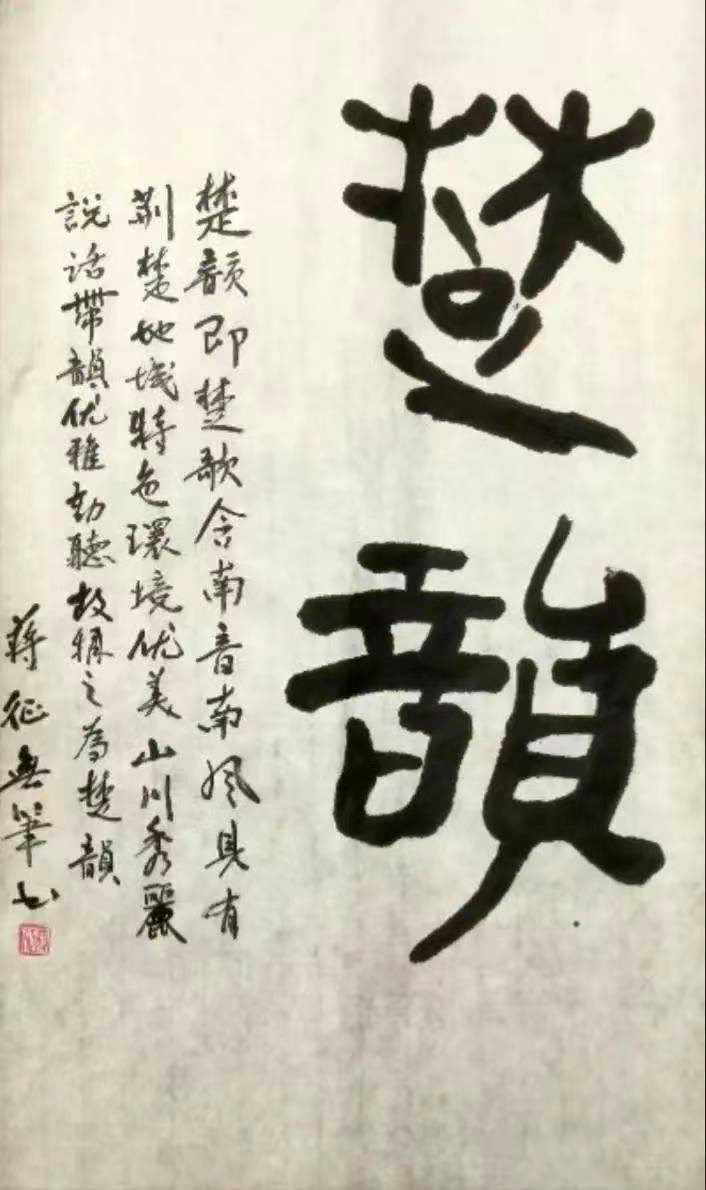 楚韻
楚韻即楚歌含南音南风具有
荆楚地域特色環境优美山川秀麗
説话帶韻优雅動聽故稱之為楚韻
蒋征無筆书